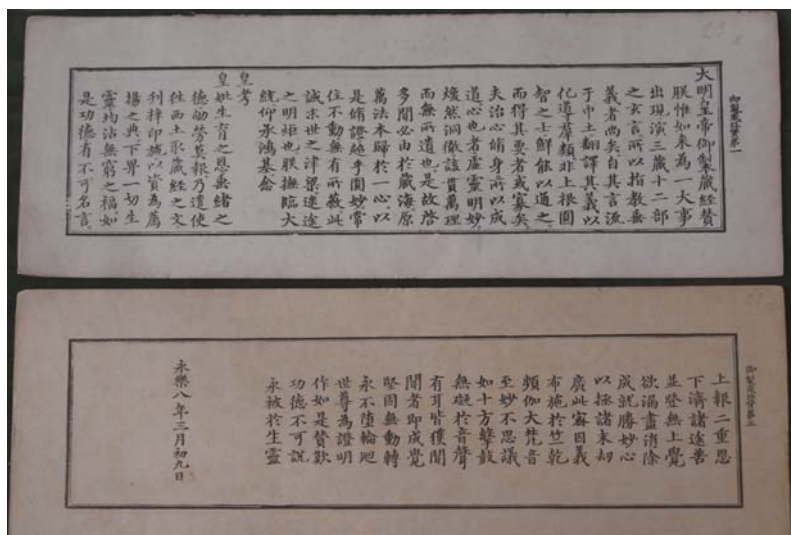 御製藏經贊第一
大明皇帝御製藏經贊
朕惟如来為一大事
出現演三藏十二部
之玄言所以指教垂
義者尚矣自其言流
于中土翻譯其義以
化導羣類非上根圓
智之士鮮能以道之
而得其要者或寡矣
夫治心脩身所以成
道心也者虛靈明妙
煥然洞徹該貫萬理
而無所遺也是故啓
多聞必由於藏海原
萬法本歸於一心以
是脩證超乎圓妙常
住不動無有所蔽此
誠末世之津梁迷途
之明炬也朕撫臨大
統仰承鴻基念
皇考
皇妣生育之恩無緒之
德劬勞莫報乃遣使
徃西土取藏經之文
刊梓印施以資為薦
揚之典下界一切生
靈均沾無窮之福如
是功德有不可名言
御製藏經贊第三
上報二重恩
下濟諸途苦
並登無上覺
欲漏盡消除
成就勝妙心
以拯諸末劫
廣此寂因義
布施於竺乾
頻伽大梵音
至妙不思議
如十方擊鼓
無礙於音聲
有耳皆獲聞
聞者即成覺
堅固無動轉
永不墮輪廻
世尊為證明
作如是贊歎
功德不可說
永被於生靈
永樂八年三月初九日